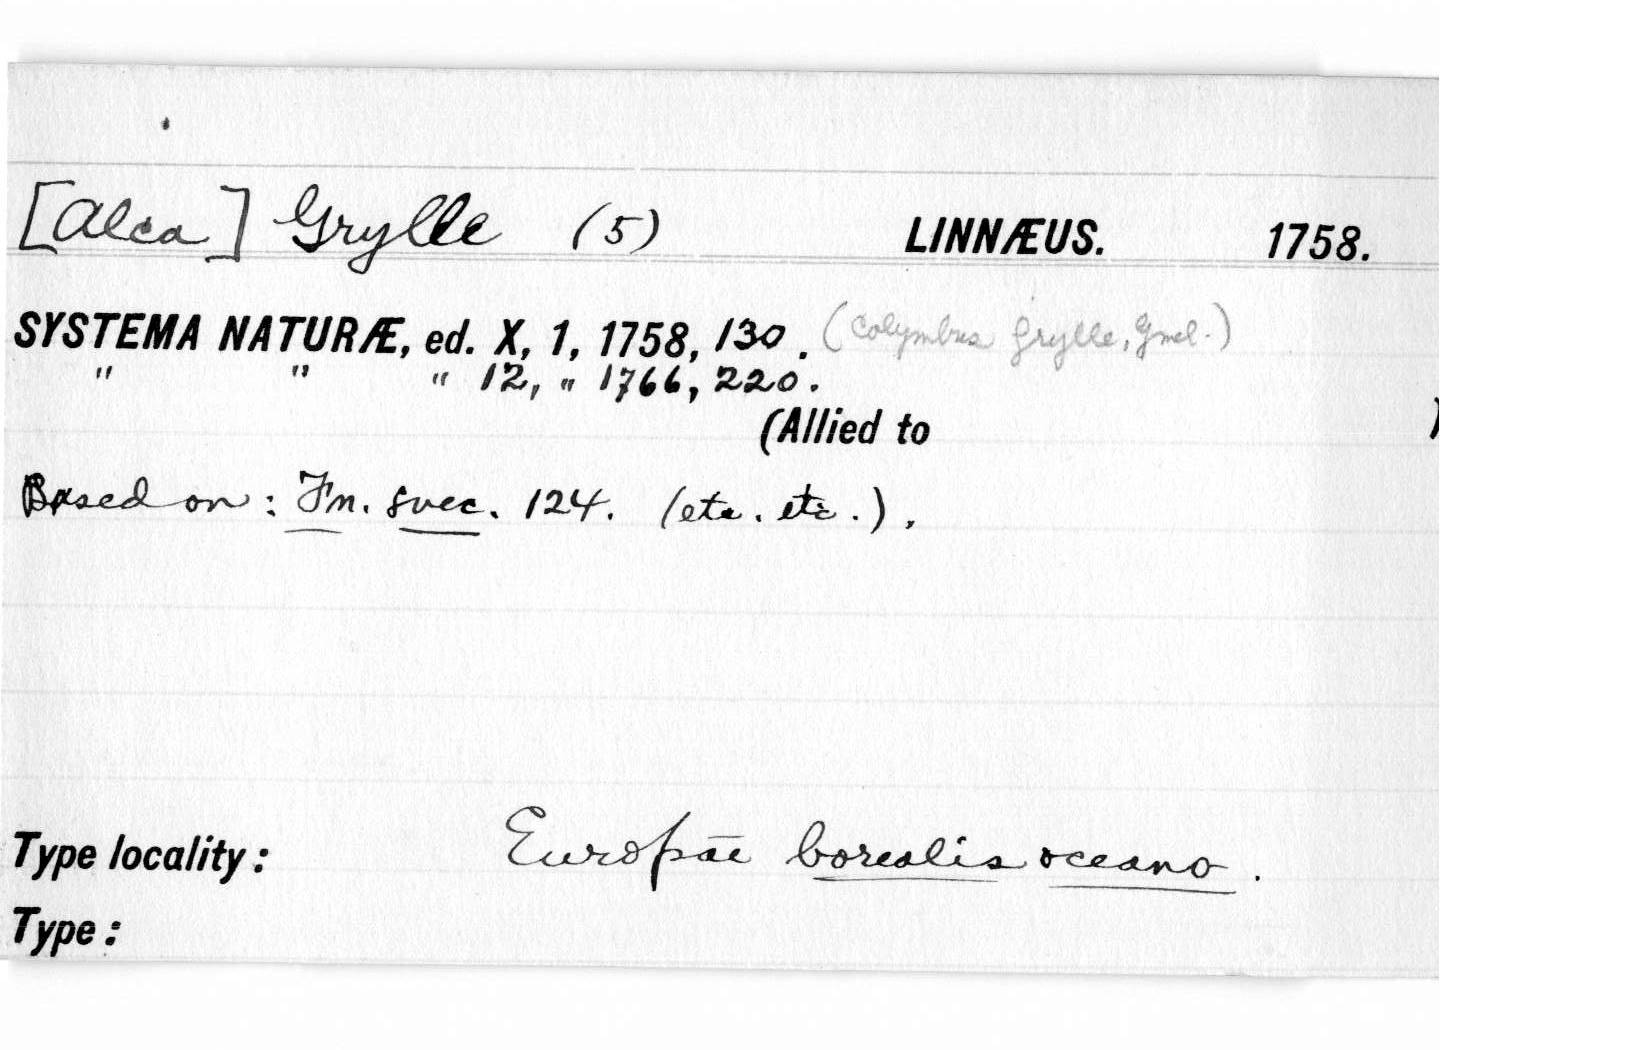 [Alca] Grylle (5) LINNÆUS. 1758.
SYSTEMA NATURÆ, ed. X, 1, 1758, 130. (Colymbus grylle, Gmel.)
" " " 12, " 1766, 220.
(Allied to )
Based on: Fn. svec. 124. (etc. etc.).
Type locality: Europae borealis oceano.
Type: